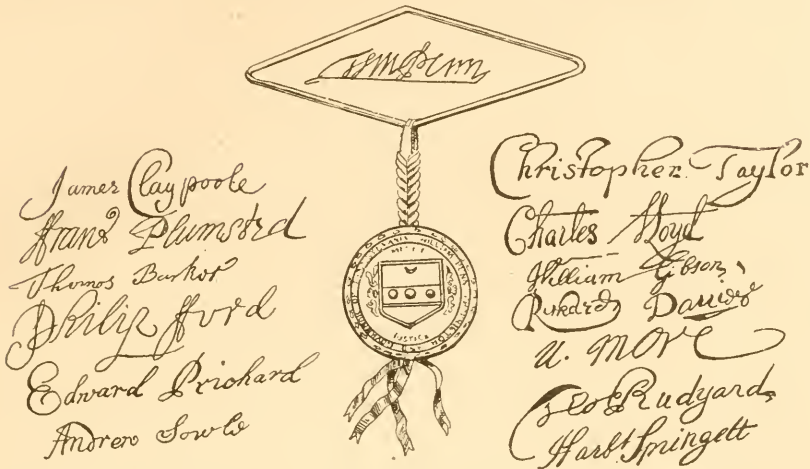 Wm Penn
James Claypoole
ffrans Plumsted
Thomas Barker
Philip fford
Edward Prichard
Andrew Sowle
MERCY
JUSTICE
Christopher Taylor
Charles Lloyd
William Gibson
Richard Davies
N. More
Geo: Rudyard
Harbt Springett